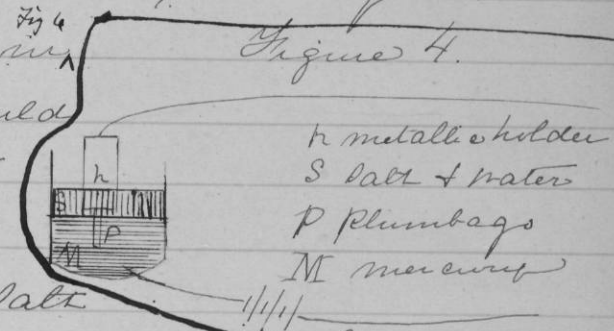 Fig 4
Figure 4.
h metallic holder
S Salt & water
P Plumbago
M mercury
h
S
P
M
Salt